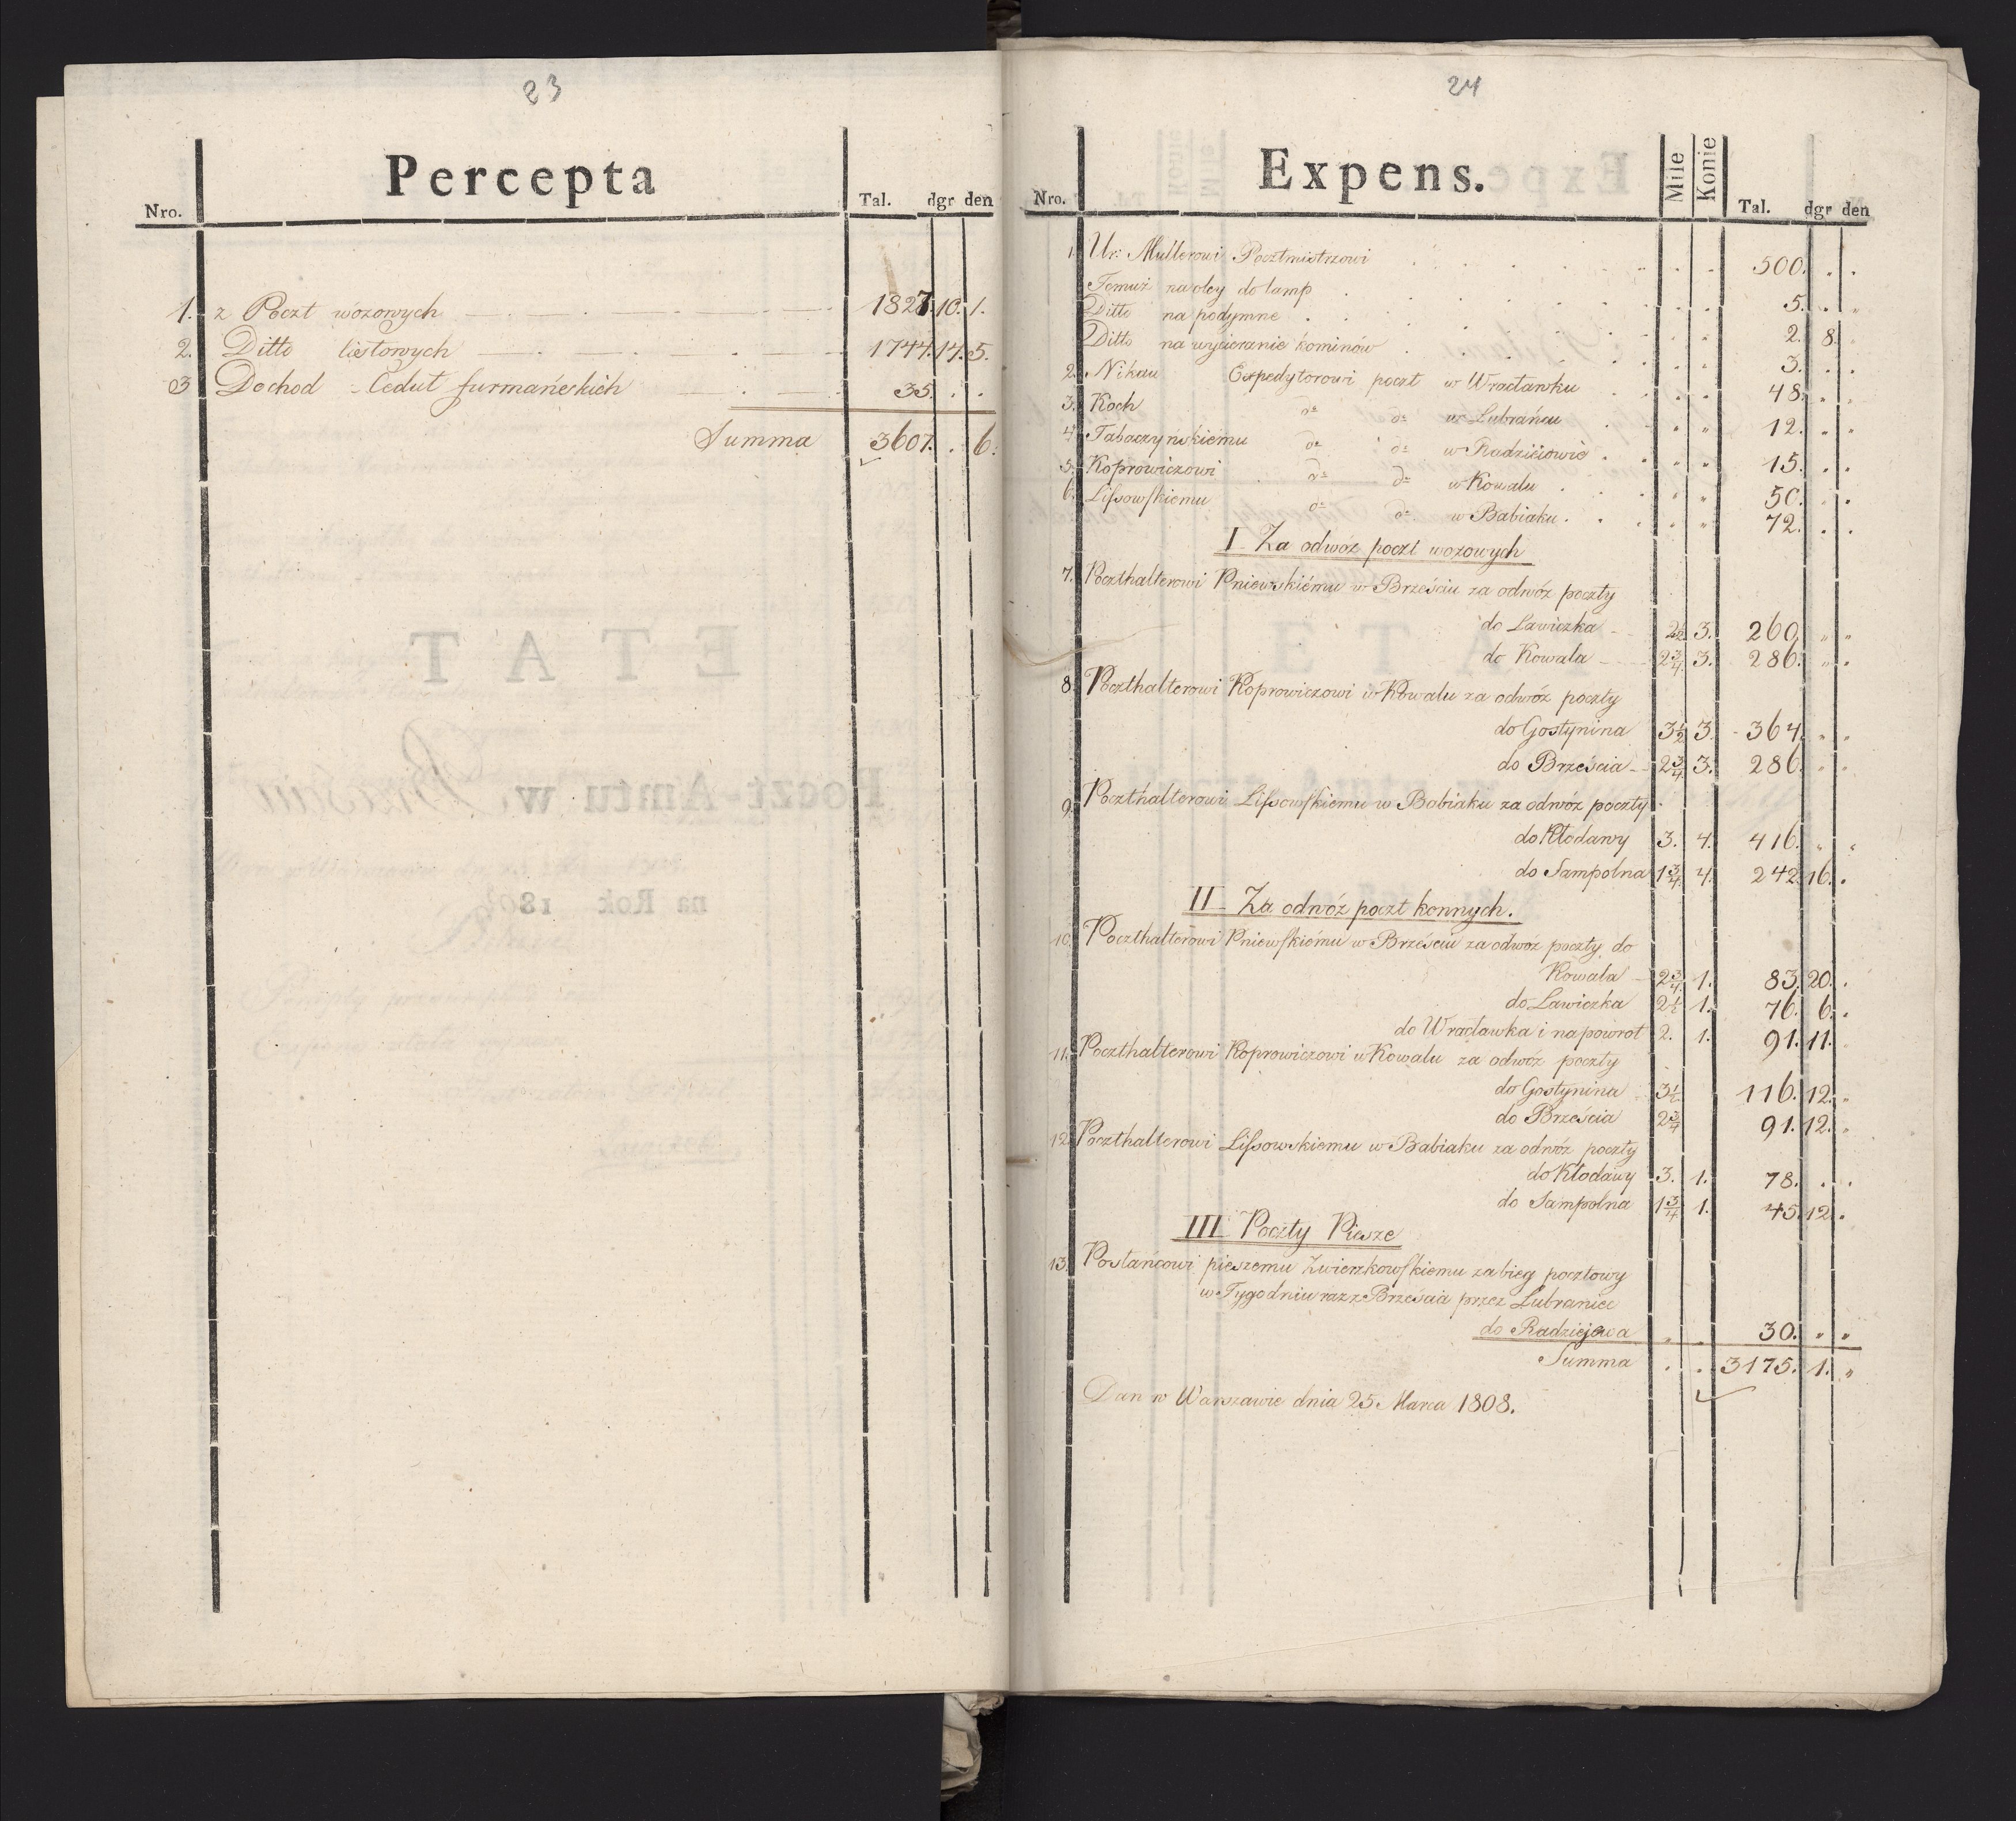 23
Percepta
Nro. Tal. dgr den
1. z Poczt wozowych 1827. 10. 1.
2. Ditto listowych 1744. 14. 5.
3 Dochod Cedut furmańskich 35. . .
Summa 3607. . 6.
24
Expens.
Nro. Mile Konie Tal. dgr den
1. Ur: Mullerowi Pocztmistrzowi 500. . .
Temuż na oley do lamp 5. . .
Ditto na podymne 2. 8.
Ditto na wycieranie kominów 3. . .
2. Nikau Expedytorowi poczt w Wracławku 48. . .
3. Koch do do w Lubrańcu 12. . .
4. Tabaczyńskiemu do do w Radziciowie 15. . .
5. Koprowiczowi do do w Kowalu 50. . .
6. Lissowskiemu do do w Babiaku 72. . .
I Za odwóz poczt wozowych
7. Poczthalterowi Pniewskiému w Brześciu za odwóz poczty
do Lawiczka 2½ 3. 260. . .
do Kowala 2¾ 3. 286. . .
8. Poczthalterowi Koprowiczowi w Kowalu za odwóz poczty
do Gostynina 3½ 3. 364. . .
do Brześcia 2¾ 3. 286. . .
9. Poczthalterowi Lissowskiemu w Babiaku za odwóz poczty
do Kłodawy 3. 4. 416. . .
do Sampolna 1¾ 4. 242. 16. .
II Za odwóz poczt konnych.
10. Poczthalterowi Pniewskiému w Brześciu za odwóz poczty do
Kowala 2¾ 1. 83. 20. .
do Lawiczka 2½ 1. 76. 6. .
do Wracławka i na powrot 2. 1. 91. 11.
11. Poczthalterowi Koprowiczowi w Kowalu za odwóz poczty
do Gostynina 3½ 116. 12. .
do Brześcia 2¾ 91. 12. .
12. Poczthalterowi Lissowskiemu w Babiaku za odwóz poczty
do Kłodawy 3. 1. 78. . .
do Sampolna 1¾ 1. 45. 12. .
III Poczty Piesze
13. Posłańcowi pieszemu Zwierzkowskiemu za bieg pocztowy
w Tygodniu raz z Brześcia przez Lubraniec
do Radziejowa 30. . .
Summa 3175. 1. .
Dan w Warszawie dnia 25. Marca 1808.